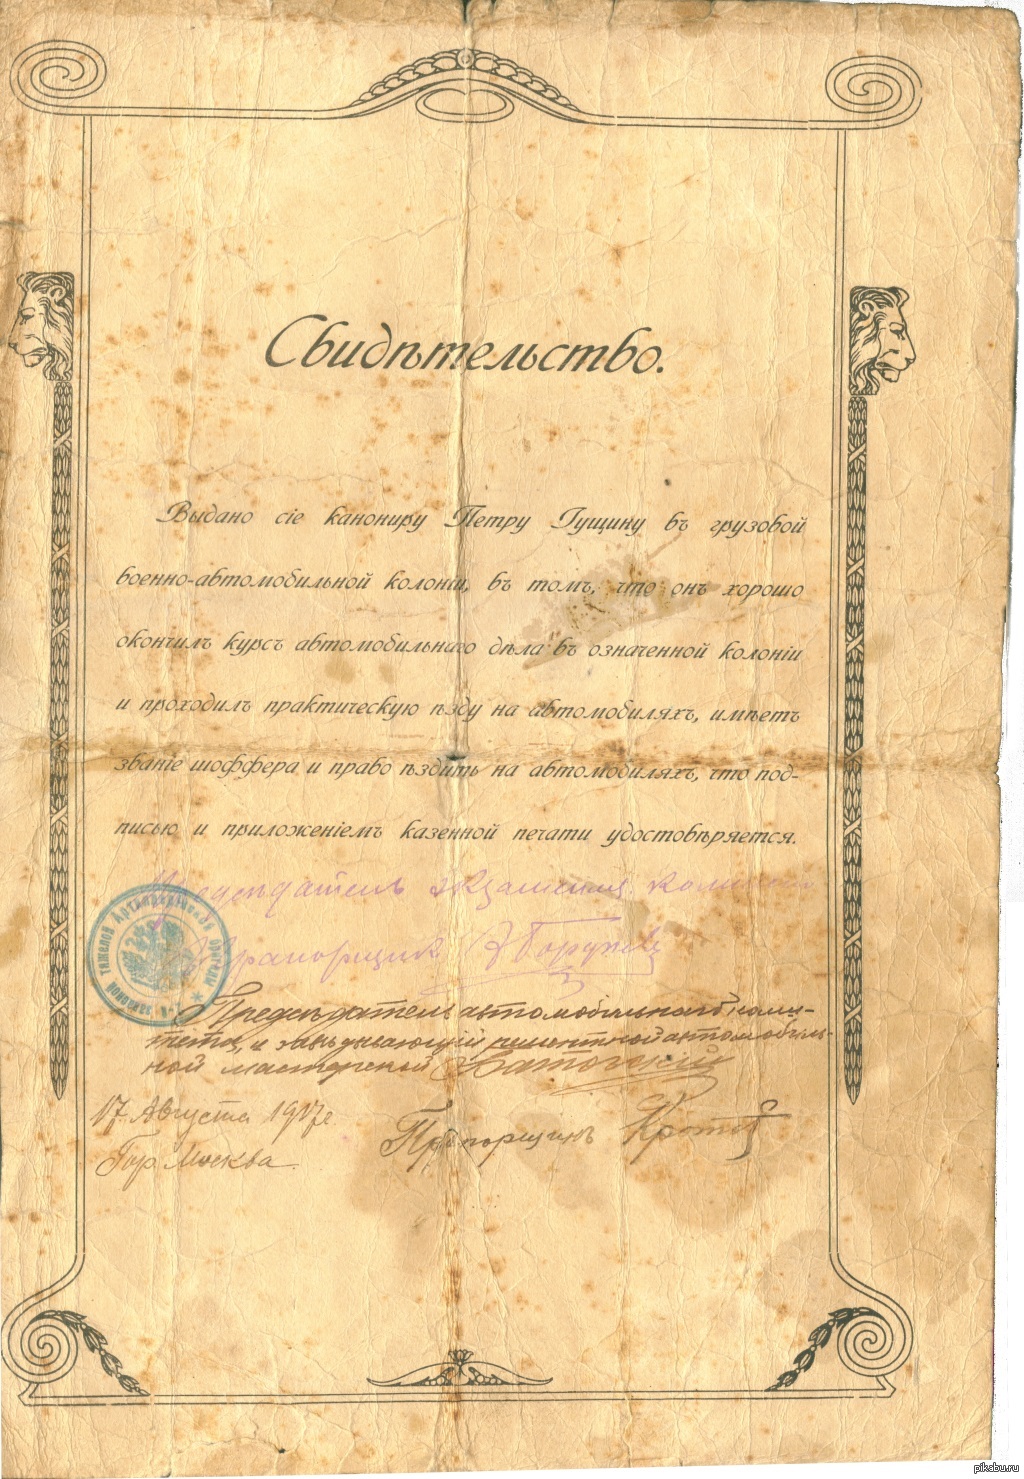 Свидѣтельство.
Выдано сіе канониру Петру Гущину въ грузовой
военно-автомобильной колоніи, въ томъ, что онъ хорошо
окончилъ курсъ автомобильнаго дѣла въ означенной колоніи
и проходилъ практическую ѣзду на автомобиляхъ, имѣетъ
званіе шоффера и право ѣздить на автомобиляхъ, что под-
писью и приложеніемъ казенной печати удостовѣряется.
Предсѣдатель экзаменац. комиссіи
Прапорщик
Тяжелой Артиллерійской бригады
Предсѣдатель автомобильнаго коми-
тета, и завѣдывающій ремонтной автомобиль-
ной мастерской
17 Августа 1917 г.
Гор Москва.
Прапорщикъ
pikabu.ru